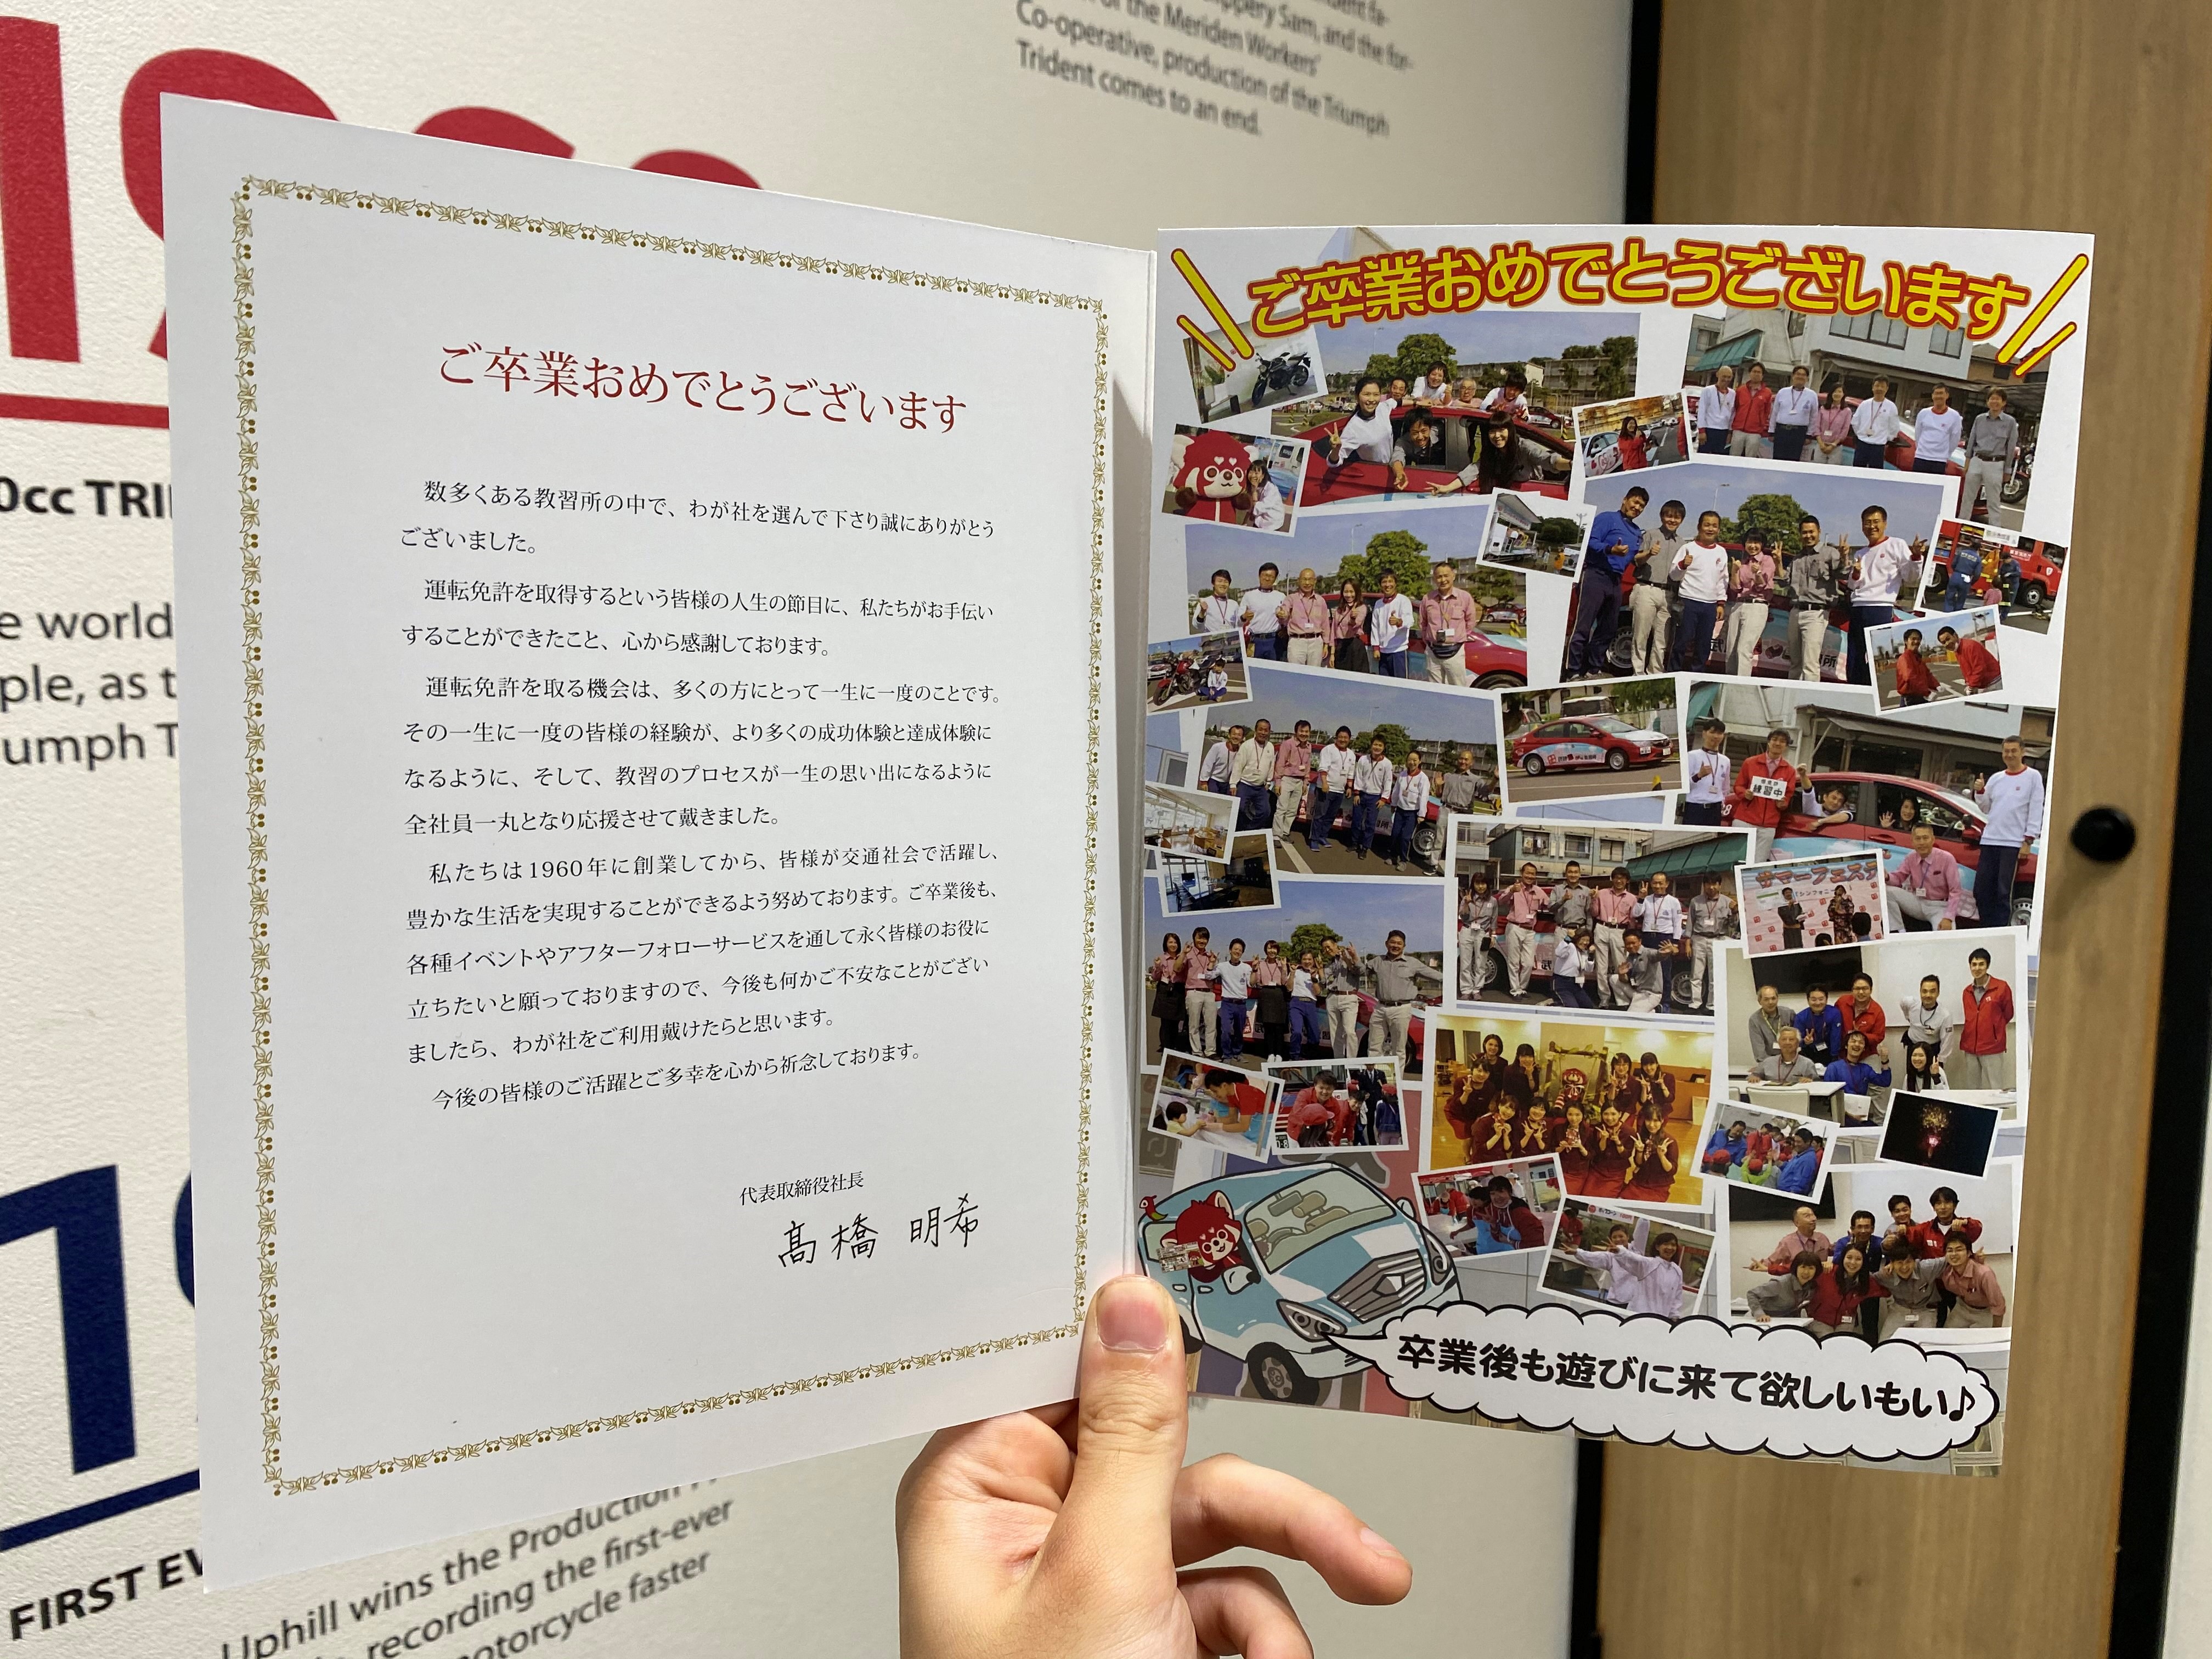 ippery Sam, and the for-
of the Meriden Workers'
Co-operative, production of the Triumph
Trident comes to an end.
0cc TRI
e world
ple, as t
umph T
FIRST EV
Uphill wins the Production
recording the first-ever
motorcycle faster
ご卒業おめでとうございます
数多くある教習所の中で、わが社を選んで下さり誠にありがとう
ございました。
運転免許を取得するという皆様の人生の節目に、私たちがお手伝い
することができたこと、心から感謝しております。
運転免許を取る機会は、多くの方にとって一生に一度のことです。
その一生に一度の皆様の経験が、より多くの成功体験と達成体験に
なるように、そして、教習のプロセスが一生の思い出になるように
全社員一丸となり応援させて戴きました。
私たちは1960年に創業してから、皆様が交通社会で活躍し、
豊かな生活を実現することができるよう努めております。ご卒業後も、
各種イベントやアフターフォローサービスを通して永く皆様のお役に
立ちたいと願っておりますので、今後も何かご不安なことがござい
ましたら、わが社をご利用戴けたらと思います。
今後の皆様のご活躍とご多幸を心から祈念しております。
代表取締役社長
髙橋 明希
ご卒業おめでとうございます
練習中
サマーフェスタ
卒業後も遊びに来て欲しいもい♪